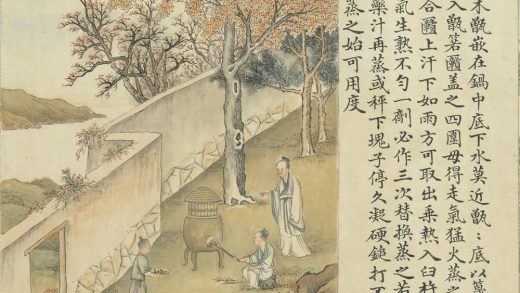 木甑嵌在鍋中底下水莫近甑底以
入甑箬厴盖之四圍毋得走氣猛火蒸之
合厴上汗下如雨方可取出乗熱入臼杵
氣生熟不匀一劑必作三次替換蒸之若
藥汁再蒸或秤下塊子停久凝硬鎚打不
蒸之始可用度